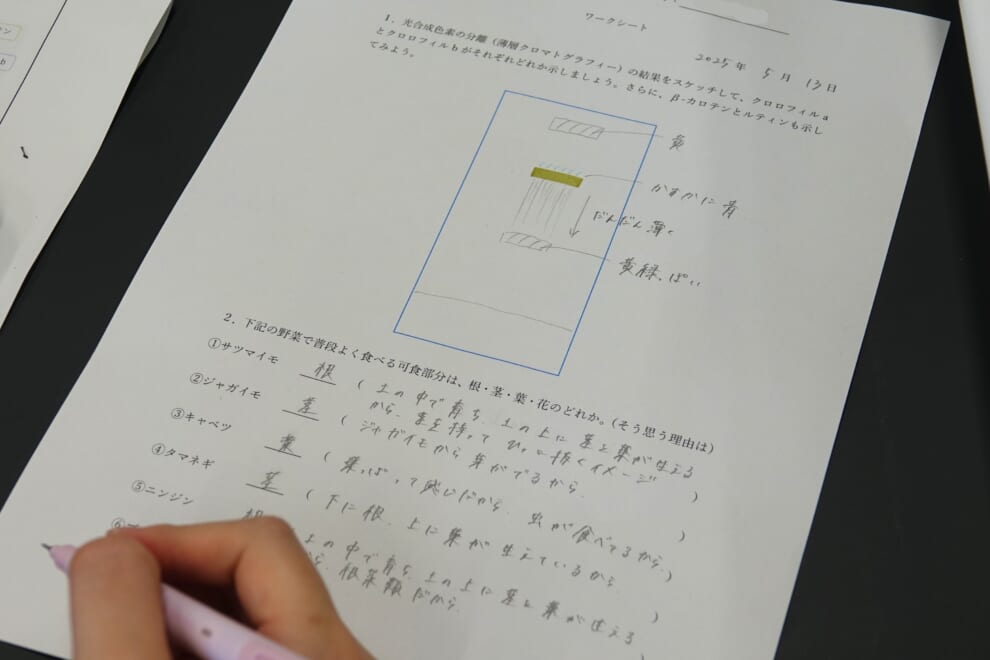 ワークシート
2025年 5月 13日
1. 光合成色素の分離(薄層クロマトグラフィー)の結果をスケッチして、クロロフィルa
とクロロフィルbがそれぞれどれか示しましょう。さらに、β-カロテンとルティンも示し
てみよう。
黄
かすかに青
だんだん薄く
黄緑っぽい
2. 下記の野菜で普段よく食べる可食部分は、根・茎・葉・花のどれか。(そう思う理由は)
①サツマイモ 根 (土の中で育ち、土の上に茎と葉が生える
から。茎を持ってひっこ抜くイメージ)
②ジャガイモ 茎 (ジャガイモから芽がでるから。)
③キャベツ 葉 (葉っぱって感じだから。虫が食べてるから。)
④タマネギ 茎 (下に根、上に葉が生えているから。)
⑤ニンジン 根 土の中で育ち、土の上に茎と葉が生える
から。根菜類だから。
⑥
ン
b